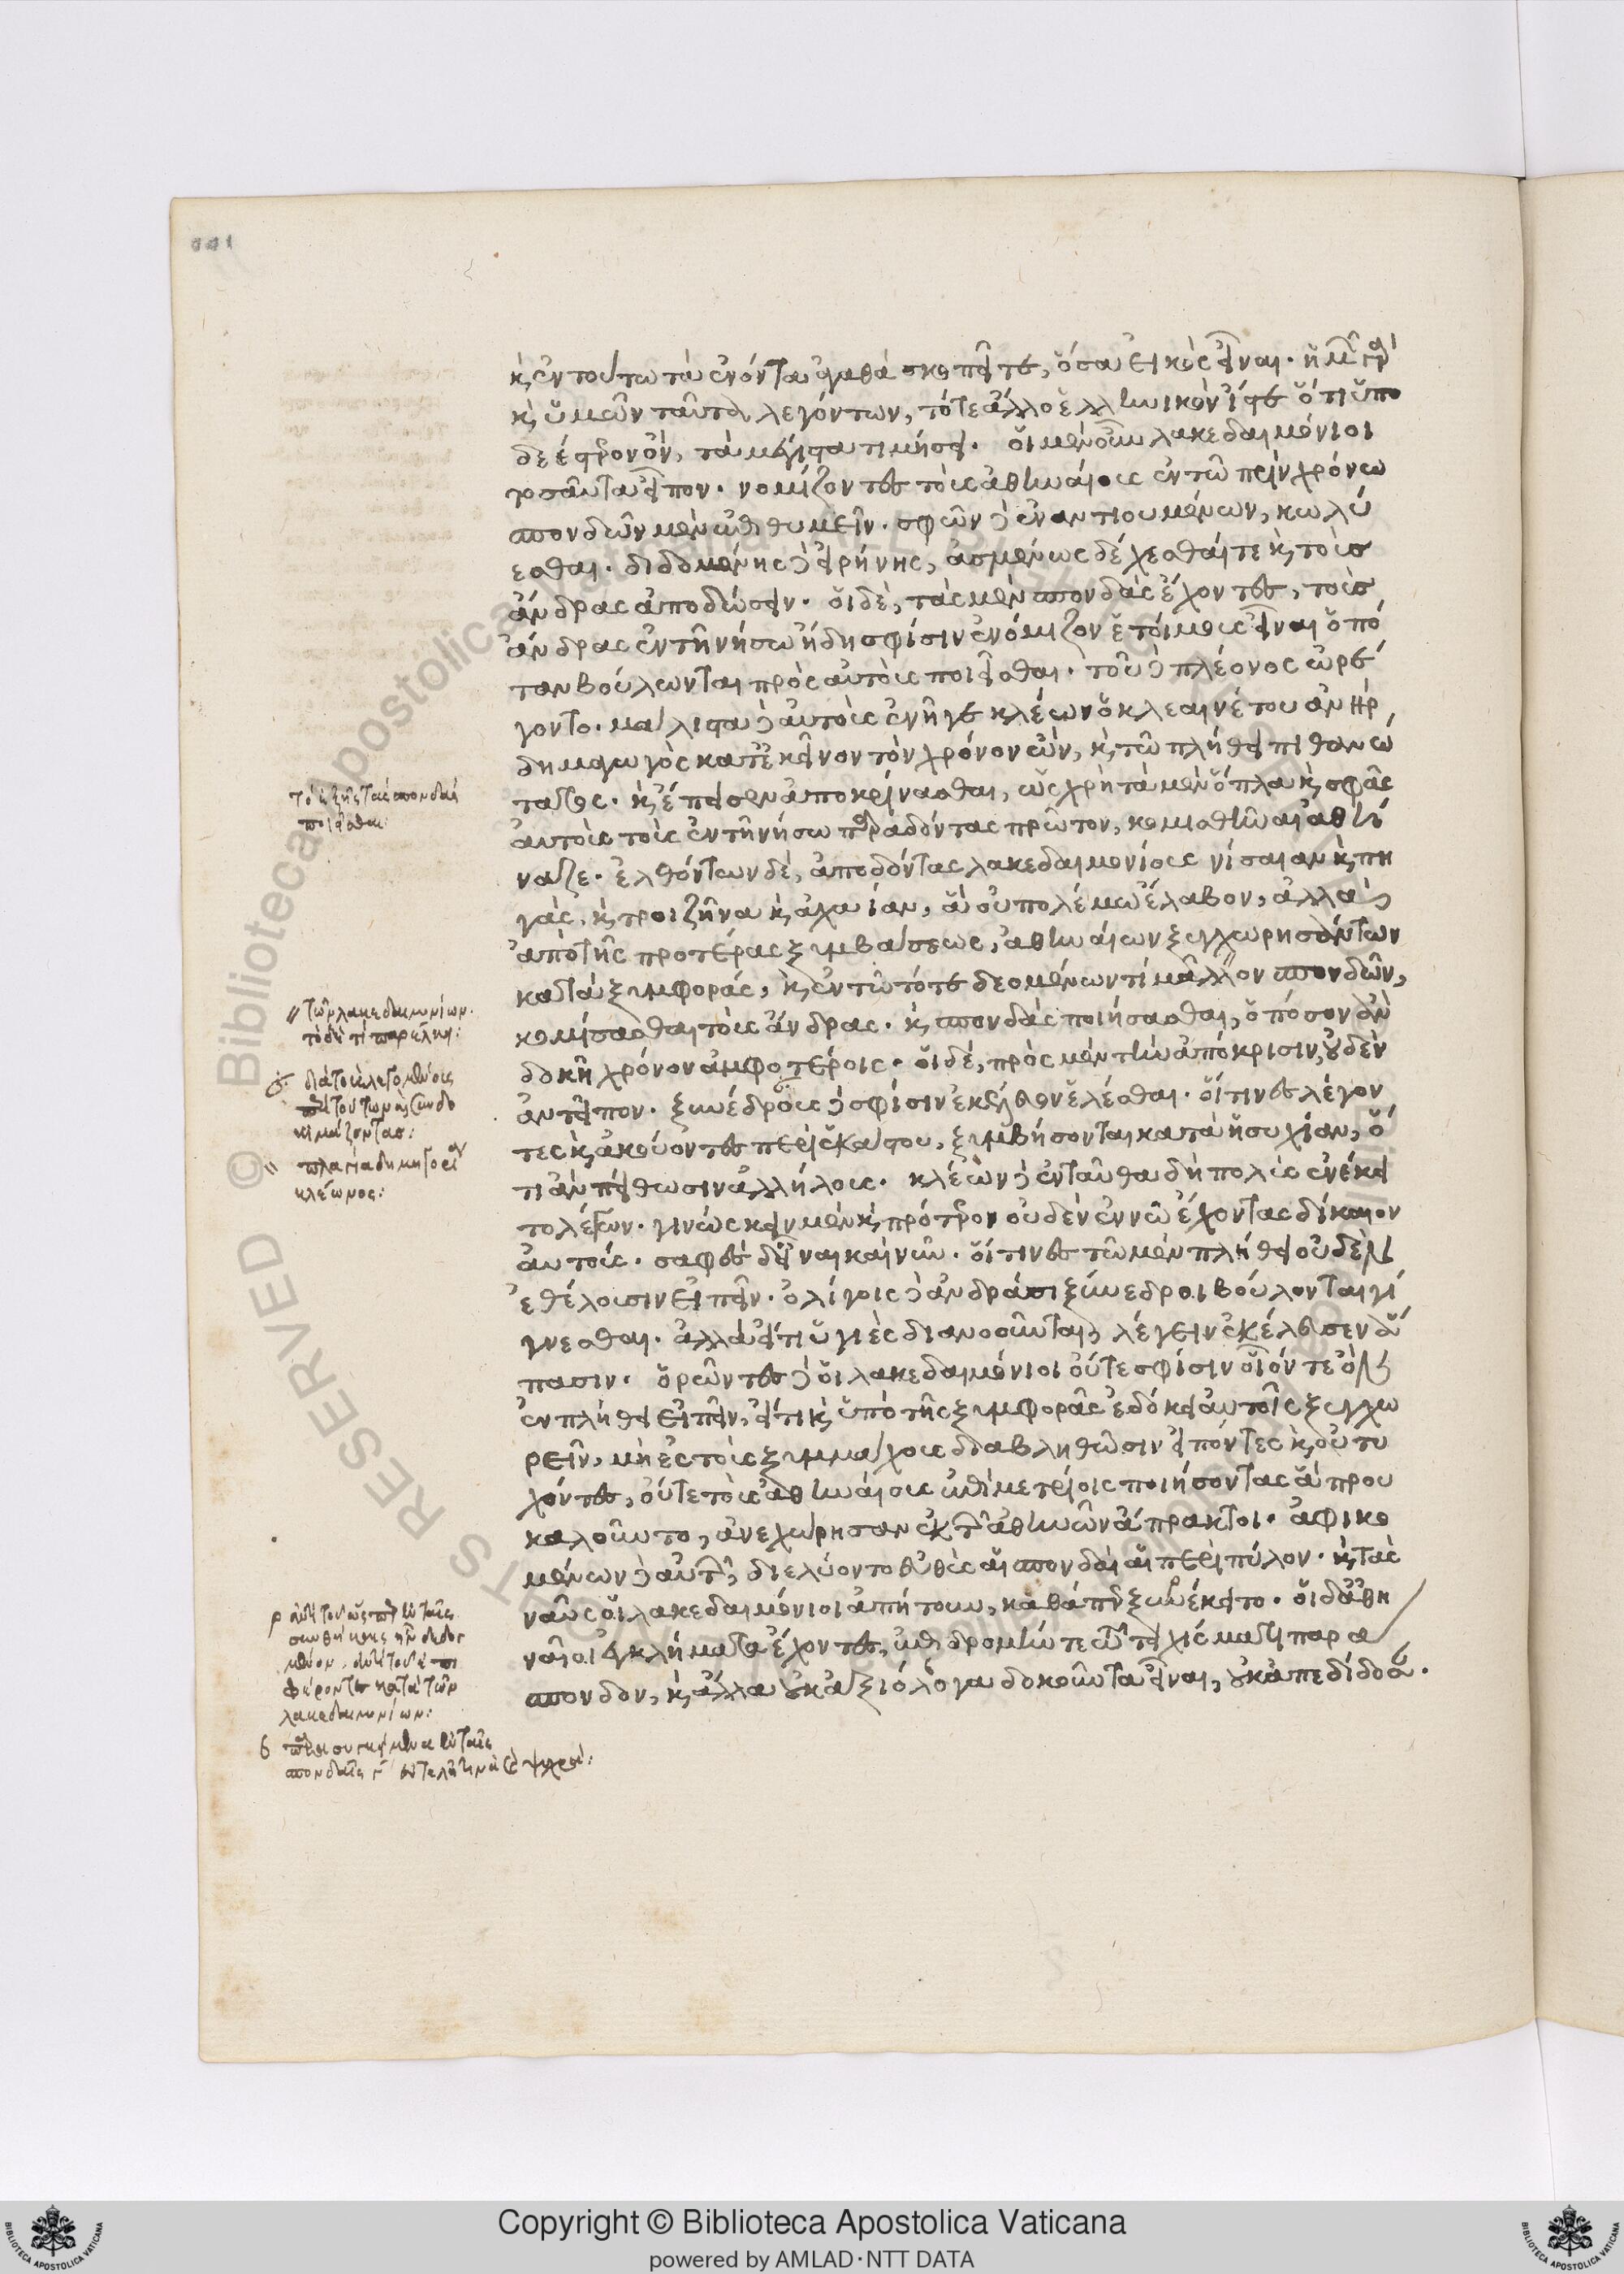 καὶ ἐν τούτω τὰ ἐνόντα ἀγαθὰ σκοπεῖτε, ὅσα εἰκὸς εἶναι. ἡμῶν γὰρ
καὶ ὑμῶν ταῦτα λεγόντων, τό τε ἄλλο ἑλληνικὸν ἴστε ὅτι ὑπο
δεέστερον ὂν, τὰ μέγιστα τιμήσει. οἱ μὲν οὖν λακεδαιμόνιοι
τοσαῦτα εἶπον. νομίζοντες τοὺς ἀθηναίους ἐν τῶ πρὶν χρόνω
σπονδῶν μὲν ἐπιθυμεῖν. σφῶν δὲ ἐναντιουμένων, κωλύ
εσθαι. διδομένης δὲ εἰρήνης, ἀσμένως δέχεσθαί τε καὶ τοὺς
ἄνδρας ἀποδώσειν. οἱ δὲ, τὰς μὲν σπονδὰς ἔχοντες, τοὺς
ἄνδρας ἐν τῆ νήσω ἤδη σφίσιν ἐνόμιζον ἑτοίμους εἶναι ὁπό
ταν βούλωνται πρὸς αὐτοὺς ποιεῖσθαι. τοῦ δὲ πλέονος ὠρέ
γοντο. μάλιστα δὲ αὐτοὺς ἐνῆγε κλέων ὁ κλεαινέτου ἀνὴρ
δημαγωγὸς κατ' ἐκεῖνον τὸν χρόνον ὢν, καὶ τῶ πλήθει πιθανώ
τατος. καὶ ἔπεισεν ἀποκρίνασθαι, ὡς χρὴ τὰ μὲν ὅπλα καὶ σφᾶς
αὐτοὺς τοὺς ἐν τῆ νήσω παραδόντας πρῶτον, κομισθῆναι ἀθή
ναζε. ἐλθόντων δὲ, ἀποδόντας λακεδαιμονίους νίσαιαν καὶ πη
γὰς, καὶ τροιζῆνα καὶ ἀχαΐαν, ἃ οὐ πολέμω ἔλαβον, ἀλλὰ
ἀπὸ τῆς προτέρας ξυμβάσεως, ἀθηναίων ξυγχωρησάντων
κατὰ ξυμφορὰς, καὶ ἐν τῶ τότε δεομένων τί μᾶλλον σπονδῶν,
κομίσασθαι τοὺς ἄνδρας. καὶ σπονδὰς ποιήσασθαι, ὁπόσον ἂν
δοκῆ χρόνον ἀμφοτέροις. οἱ δὲ, πρὸς μὲν τὴν ἀπόκρισιν, οὐδὲν
ἀντεῖπον. ξυνέδρους δὲ σφίσιν ἐκέλευον ἑλέσθαι. οἵτινες λέγον
τες καὶ ἀκούοντες περὶ ἑκάστου, ξυμβήσονται κατὰ ἡσυχίαν, ὅ
τι ἂν πείθωσιν ἀλλήλους. κλέων δὲ ἐνταῦθα δὴ πολὺς ἐνέκει
το λέγων. γινώσκειν μὲν καὶ πρότερον οὐδὲν ἐν νῶ ἔχοντας δίκαιον
αὐτοὺς. σαφὲς δ' εἶναι καὶ νῦν. οἵτινες τῶ μὲν πλήθει οὐδὲν
ἐθέλουσιν εἰπεῖν. ὀλίγοις δὲ ἀνδράσι ξύνεδροι βούλονται γί
γνεσθαι. ἀλλὰ εἴ τι ὑγιὲς διανοοῦνται, λέγειν ἐκέλευσεν ἅ
πασιν. ὁρῶντες δὲ οἱ λακεδαιμόνιοι οὔτε σφίσιν οἷόν τε ὂν
ἐν πλήθει εἰπεῖν, εἴ τι καὶ ὑπὸ τῆς ξυμφορᾶς ἐδόκει αὐτοῖς ξυγχω
ρεῖν, μὴ ἐς τοὺς ξυμμάχους διαβληθῶσιν εἰπόντες καὶ οὐ τυ
χόντες, οὔτε τοὺς ἀθηναίους ἐπὶ μετρίοις ποιήσοντας ἃ πρου
καλοῦντο, ἀνεχώρησαν ἐκ τῶν ἀθηνῶν ἄπρακτοι. ἀφικο
μένων δὲ αὐτῶν, διελύοντο εὐθὺς αἱ σπονδαὶ αἱ περὶ πύλον. καὶ τὰς
ναῦς οἱ λακεδαιμόνιοι ἀπήτουν, καθάπερ ξυνέκειτο. οἱ δ' ἀθη
ναῖοι ἐγκλήματα ἔχοντες, ἐπιδρομήν τε τῶ τειχίσματι παρά
σπονδον, καὶ ἄλλα οὐκ ἀξιόλογα δοκοῦντα εἶναι, οὐκ ἀπεδίδοσαν.
τὸ ἑξῆς τὰς σπονδὰς
ποιεῖσθαι:
τῶν λακεδαιμονίων.
τὸ δὲ τί παρέλκει:
διὰ τοὺς λεγομένους
κιμάζοντας:
κλέωνος:
λακεδαιμονίων:
σπονδαῖς
Copyright © Biblioteca Apostolica Vaticana
powered by AMLAD·NTT DATA